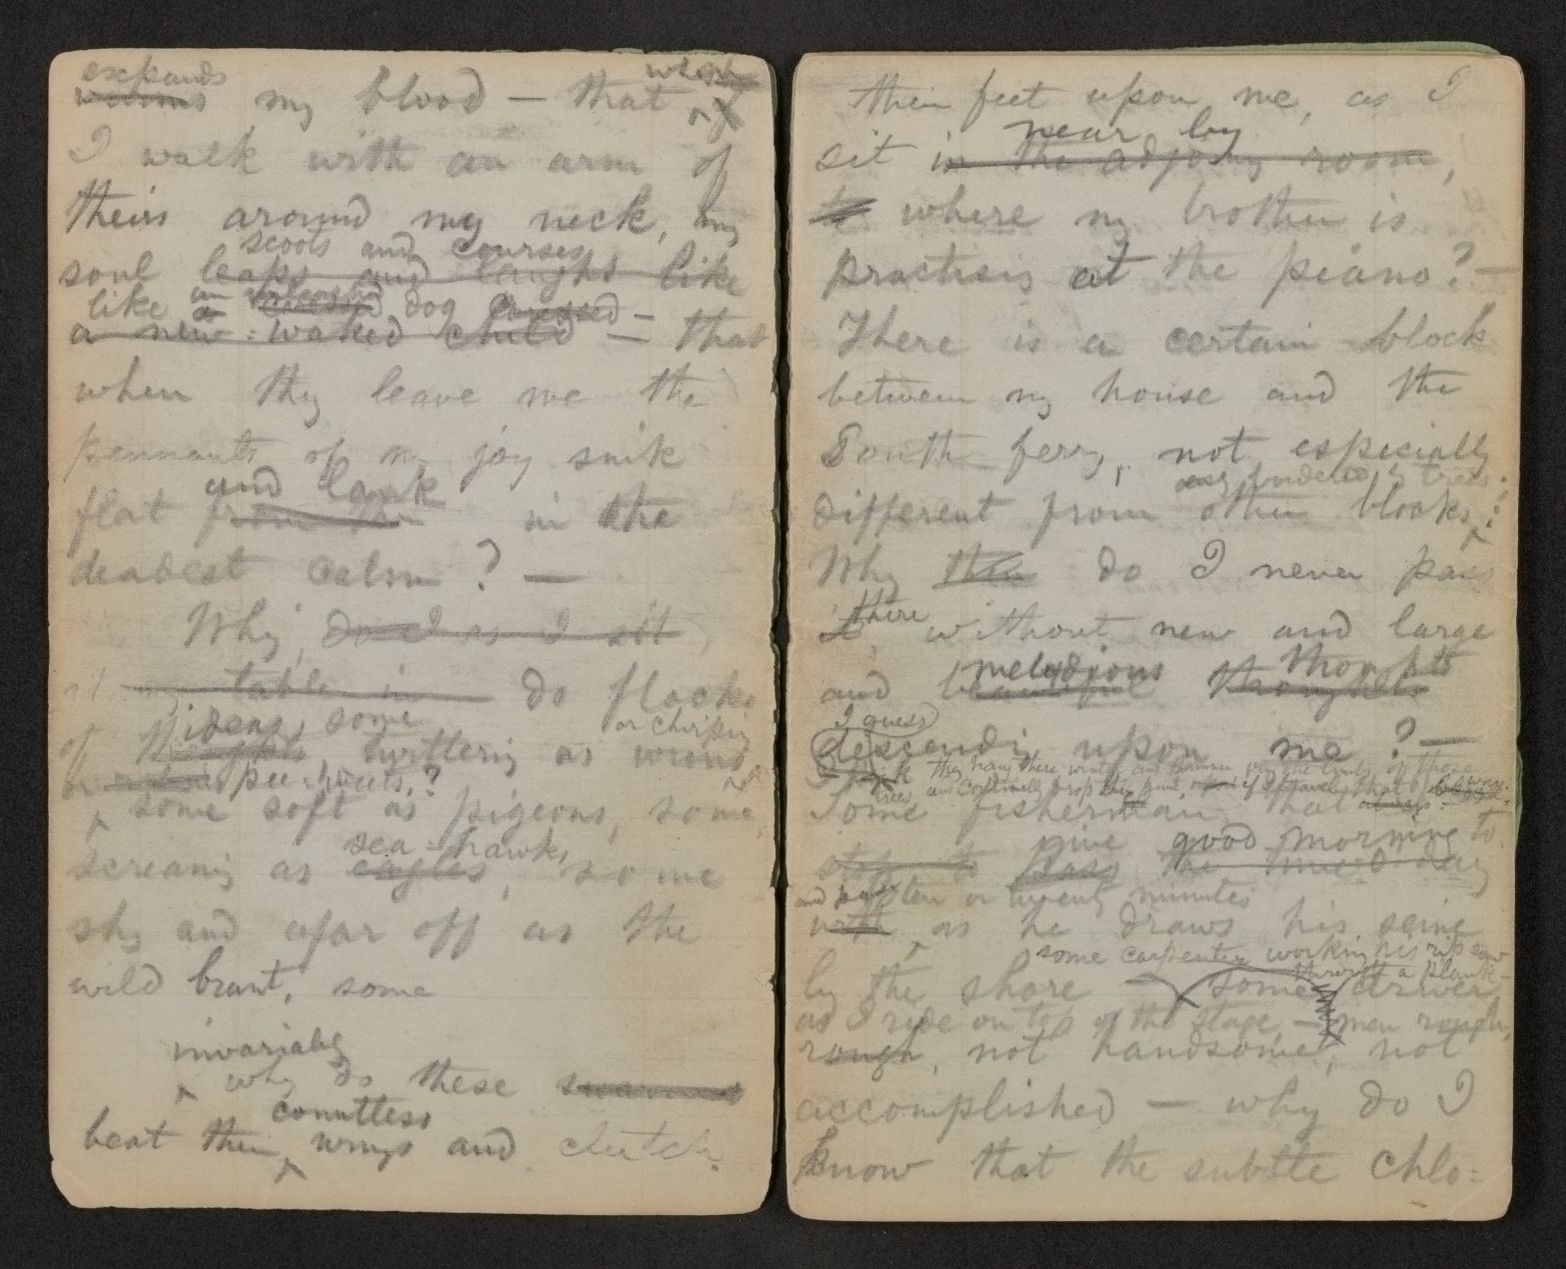 expands which
warms my blood — that if
I walk with an arm of
theirs around my neck, my
scoots and courses
soul leaps and laughs like
like an unleashed dog caressed —
a new-waked child — that
when they leave me the
pennants of my joy sink
and lank
flat from the in the
deadest calm? —
Why, do I as I sit
at my table in do flocks
ideas, some or chirping
of thoughts twittering as wrens
or pee-weets,?
some soft as pigeons, some
sea-hawks,
screaming as eagles, some
shy and afar off as the
wild brant, some
invariably
why do these swarms
countless
beat their wings and clutch
their feet upon me, as I
near by
sit in the adjoining room,
to where my brother is
practising at the piano? —
There is a certain block
between my house and the
South ferry, not especially
bordered by trees
different from other blocks;
Why then do I never pass
there
it without new and large
melodious thoughts
and beautiful thoughts
I guess
descending upon me? —
I think they hang there winter and summer on the limbs of those
trees and continually drop the fruit if I travel that always way.
Some fisherman that
give good morning to
stop to pass the time o' day
and pass ten or twenty minutes
with as he draws his seine
some carpenter working his rip saw
through a plank
by the shore — some driver
as I ride on top of the stage, — men rough,
rough, not handsome, not
accomplished — why do I
know that the subtle chlo=